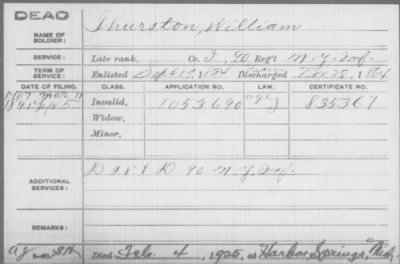 DEAD
NAME OF SOLDIER: Thurston, William
SERVICE: Late rank, Co. I, 90 Reg't N.Y. Inf.
TERM OF SERVICE: Enlisted Sept 19, 1864 Discharged Nov 28, 1864
DATE OF FILING. CLASS. APPLICATION NO. LAW. CERTIFICATE NO.
Invalid, 1053690 835367
Widow,
Minor,
ADDITIONAL SERVICES: D 90 N.Y. Inf.
REMARKS:
Died Feb. 4, 1925, at Harbor Springs, Mich.